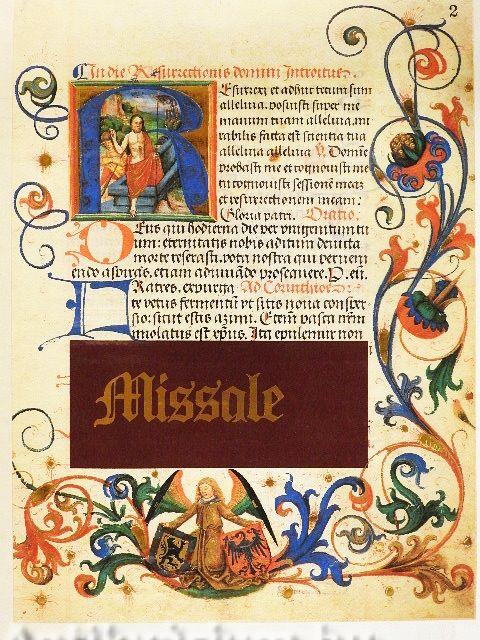 2
In die Resurrectionis domini Introitus.
Resurrexi et adhuc tecum sum
alleluia. posuisti super me
manum tuam alleluia. mi
rabilis facta est scientia tua
alleluia alleluia V. Domine
probasti me et cognouisti me
tu cognouisti sessionē meā
et resurrectionem meam.
Gloria patri. Oratio.
Deus qui hodierna die per vnigenitum tu
um: eternitatis nobis aditum deuicta
morte reserasti. vota nostra que preueni
endo aspiras. etiam adiuuādo prosequere. P. eū.
Fratres. expurga Ad Corinthios
te vetus fermentū vt sitis noua consper
sio: sicut estis azimi. Etem̄ pasca nr̄m
immolatus est xp̄us. Itaq epulemur non
Missale